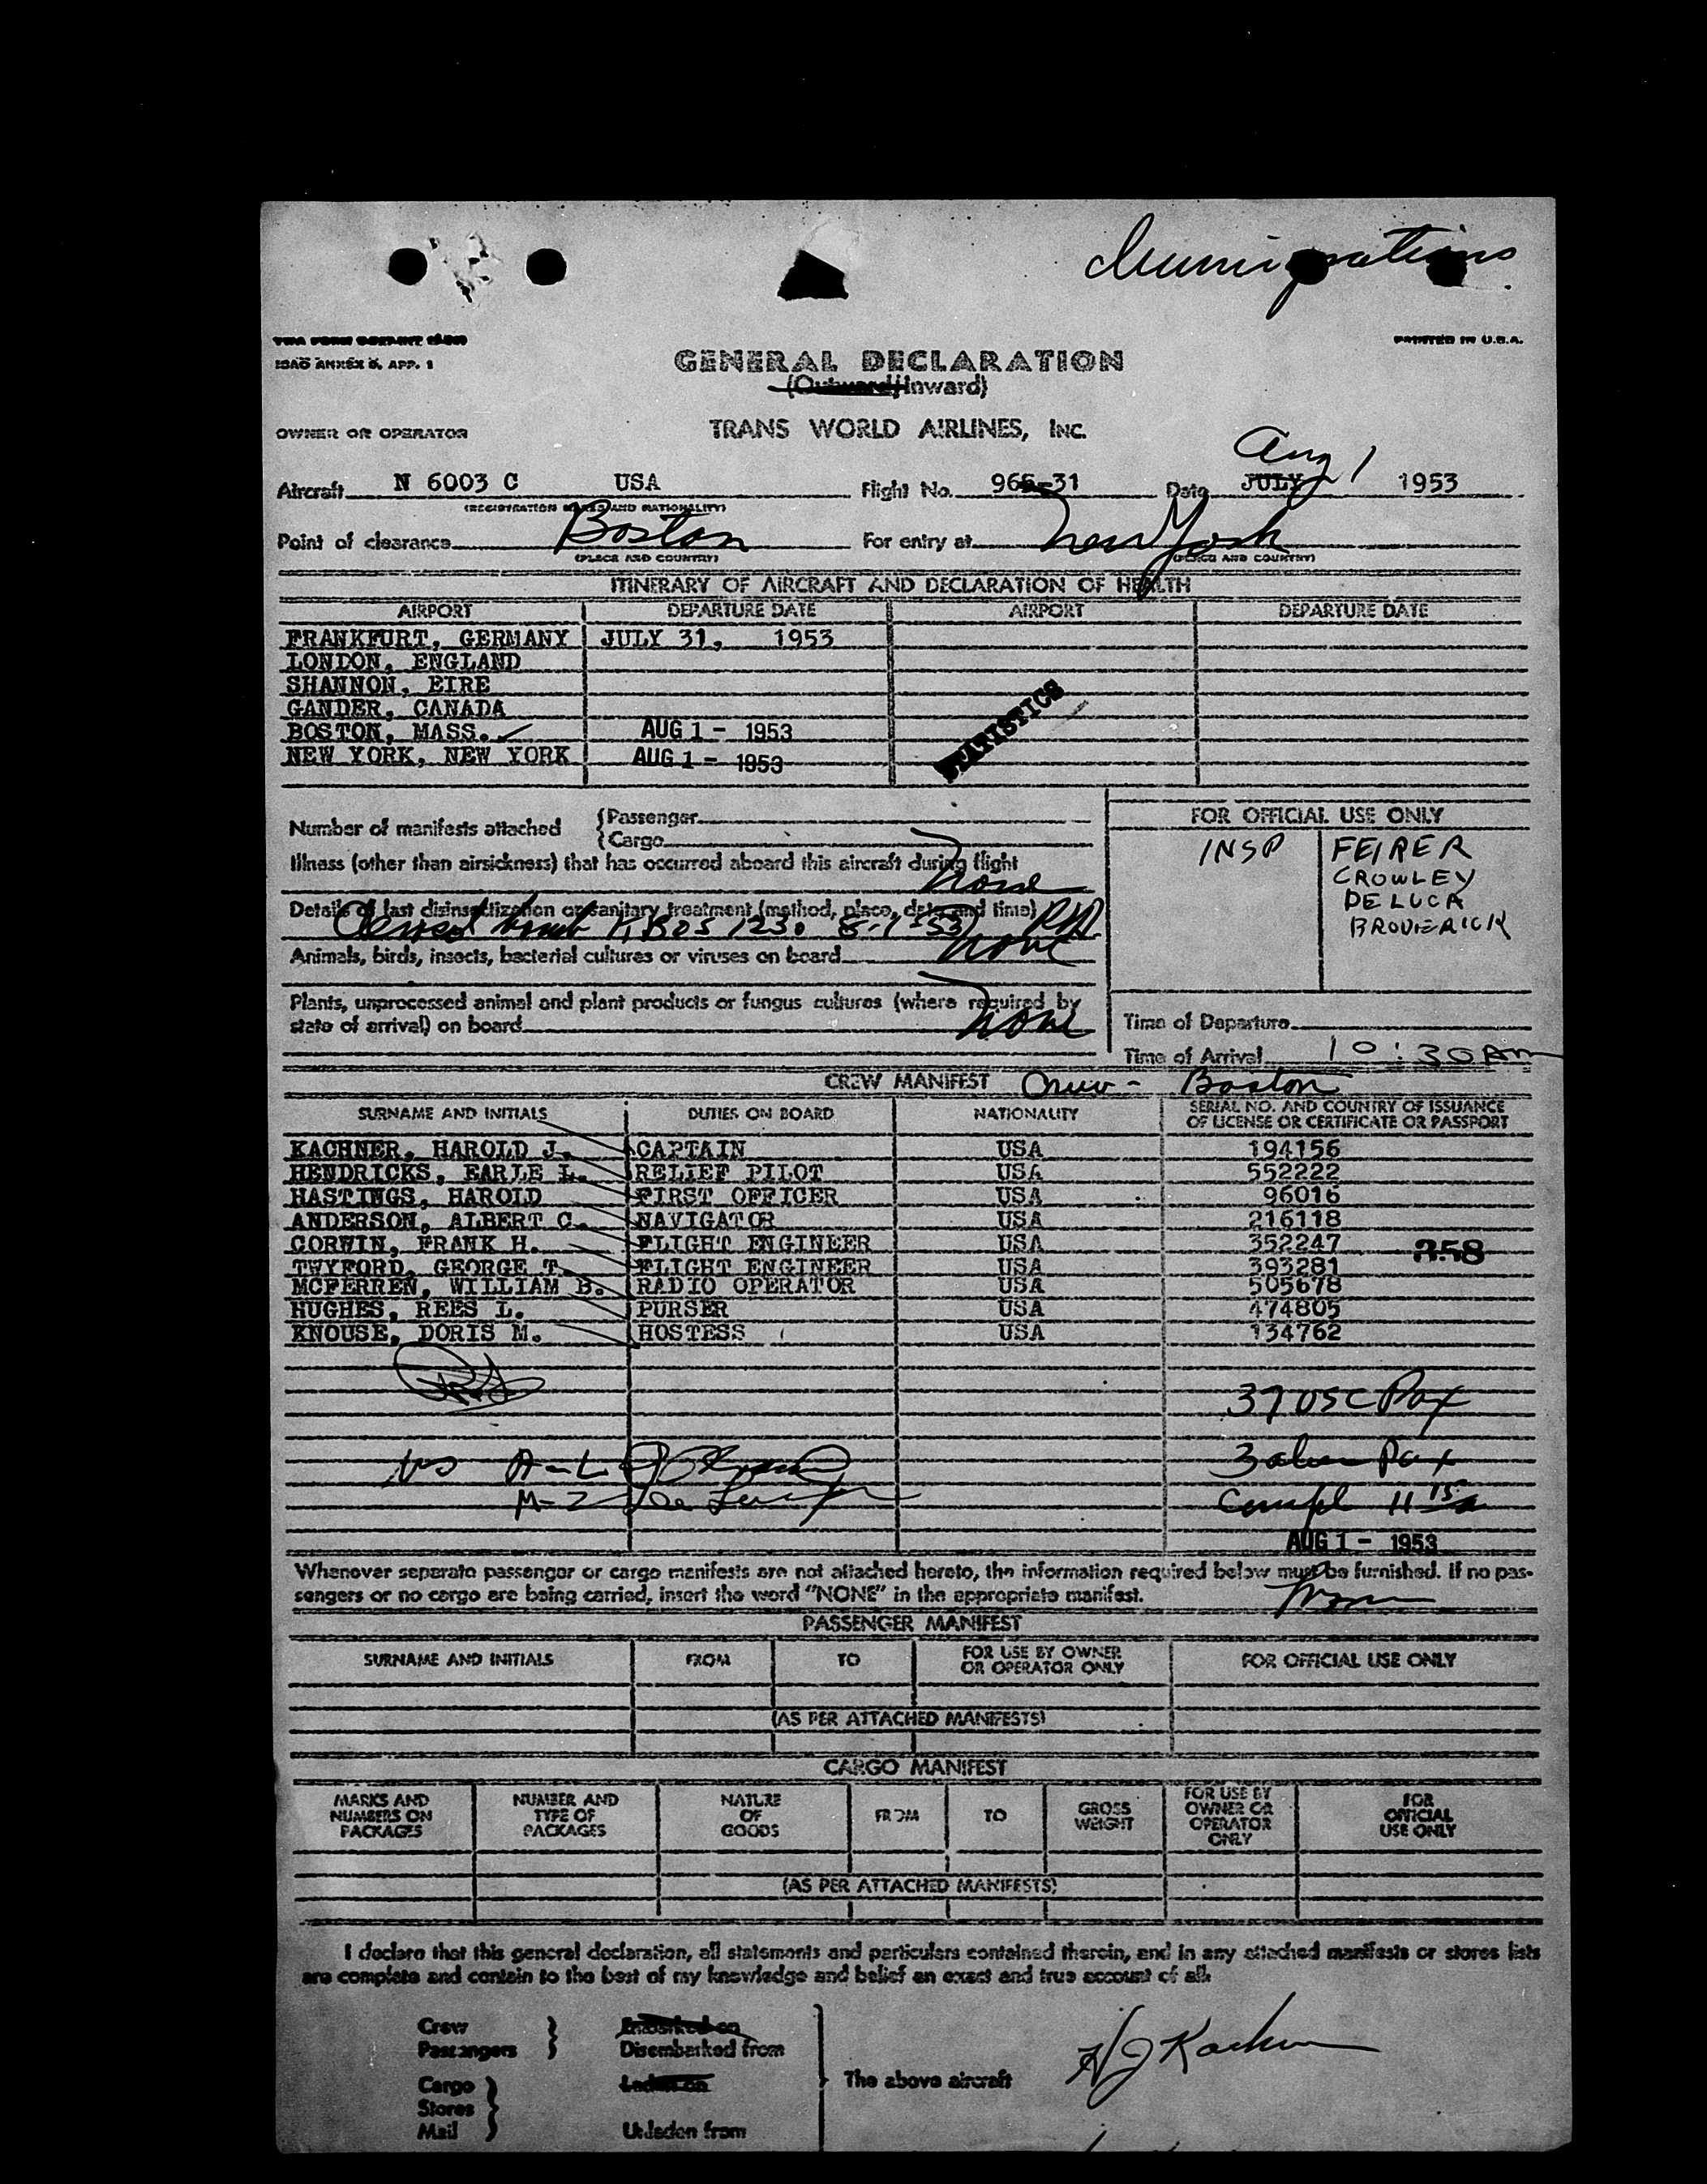 Immigrations
PRINTED IN U.S.A.
ICAO ANNEX 9, APP. 1
GENERAL DECLARATION
(Outward/Inward)
OWNER OR OPERATOR TRANS WORLD AIRLINES, INC.
Aug 1
Aircraft N 6003 C USA Flight No. 965-31 Date JULY 1953
(REGISTRATION MARKS AND NATIONALITY)
Point of clearance Boston For entry at New York
(PLACE AND COUNTRY) (PLACE AND COUNTRY)
ITINERARY OF AIRCRAFT AND DECLARATION OF HEALTH
AIRPORT DEPARTURE DATE AIRPORT DEPARTURE DATE
FRANKFURT, GERMANY JULY 31, 1953
LONDON, ENGLAND
SHANNON, EIRE
GANDER, CANADA
BOSTON, MASS. AUG 1 - 1953
NEW YORK, NEW YORK AUG 1 - 1953
STATISTICS
Number of manifests attached {Passenger
{Cargo
FOR OFFICIAL USE ONLY
INSP FEIRER
CROWLEY
DELUCA
BRODERICK
Illness (other than airsickness) that has occurred aboard this aircraft during flight
None
Details of last disinsectization or sanitary treatment (method, place, date and time)
Aerosol bomb KBOS 1230 8-1-53
Animals, birds, insects, bacterial cultures or viruses on board None
Plants, unprocessed animal and plant products or fungus cultures (where required by
state of arrival) on board None
Time of Departure
Time of Arrival 10:30 AM
CREW MANIFEST Crew - Boston
SURNAME AND INITIALS DUTIES ON BOARD NATIONALITY SERIAL NO. AND COUNTRY OF ISSUANCE
OF LICENSE OR CERTIFICATE OR PASSPORT
KACHNER, HAROLD J. CAPTAIN USA 194156
HENDRICKS, EARLE L. RELIEF PILOT USA 552222
HASTINGS, HAROLD FIRST OFFICER USA 96016
ANDERSON, ALBERT C. NAVIGATOR USA 216118
CORWIN, FRANK H. FLIGHT ENGINEER USA 352247
358
TWYFORD, GEORGE T. FLIGHT ENGINEER USA 393281
MCFERREN, WILLIAM B. RADIO OPERATOR USA 505678
HUGHES, REES L. PURSER USA 474805
KNOUSE, DORIS M. HOSTESS USA 134762
37 USC Pax
A-L
3 alien Pax
M-Z
Compl 11 15a
AUG 1 - 1953
Whenever separate passenger or cargo manifests are not attached hereto, the information required below must be furnished. If no pas-
sengers or no cargo are being carried, insert the word "NONE" in the appropriate manifest.
PASSENGER MANIFEST
SURNAME AND INITIALS FROM TO FOR USE BY OWNER
OR OPERATOR ONLY FOR OFFICIAL USE ONLY
(AS PER ATTACHED MANIFESTS)
CARGO MANIFEST
MARKS AND
NUMBERS ON
PACKAGES NUMBER AND
TYPE OF
PACKAGES NATURE
OF
GOODS FROM TO GROSS
WEIGHT FOR USE BY
OWNER OR
OPERATOR
ONLY FOR
OFFICIAL
USE ONLY
(AS PER ATTACHED MANIFESTS)
I declare that this general declaration, all statements and particulars contained therein, and in any attached manifests or stores lists
are complete and contain to the best of my knowledge and belief an exact and true account of all:
Crew } Embarked on
Passengers } Disembarked from
Cargo } Laden on
The above aircraft
H J Kachner
Stores
Mail Unladen from